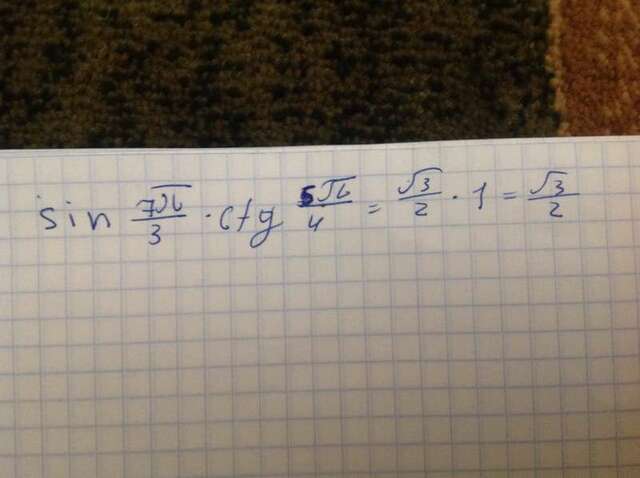 sin 7π/3 · ctg 5π/4 = √3/2 · 1 = √3/2